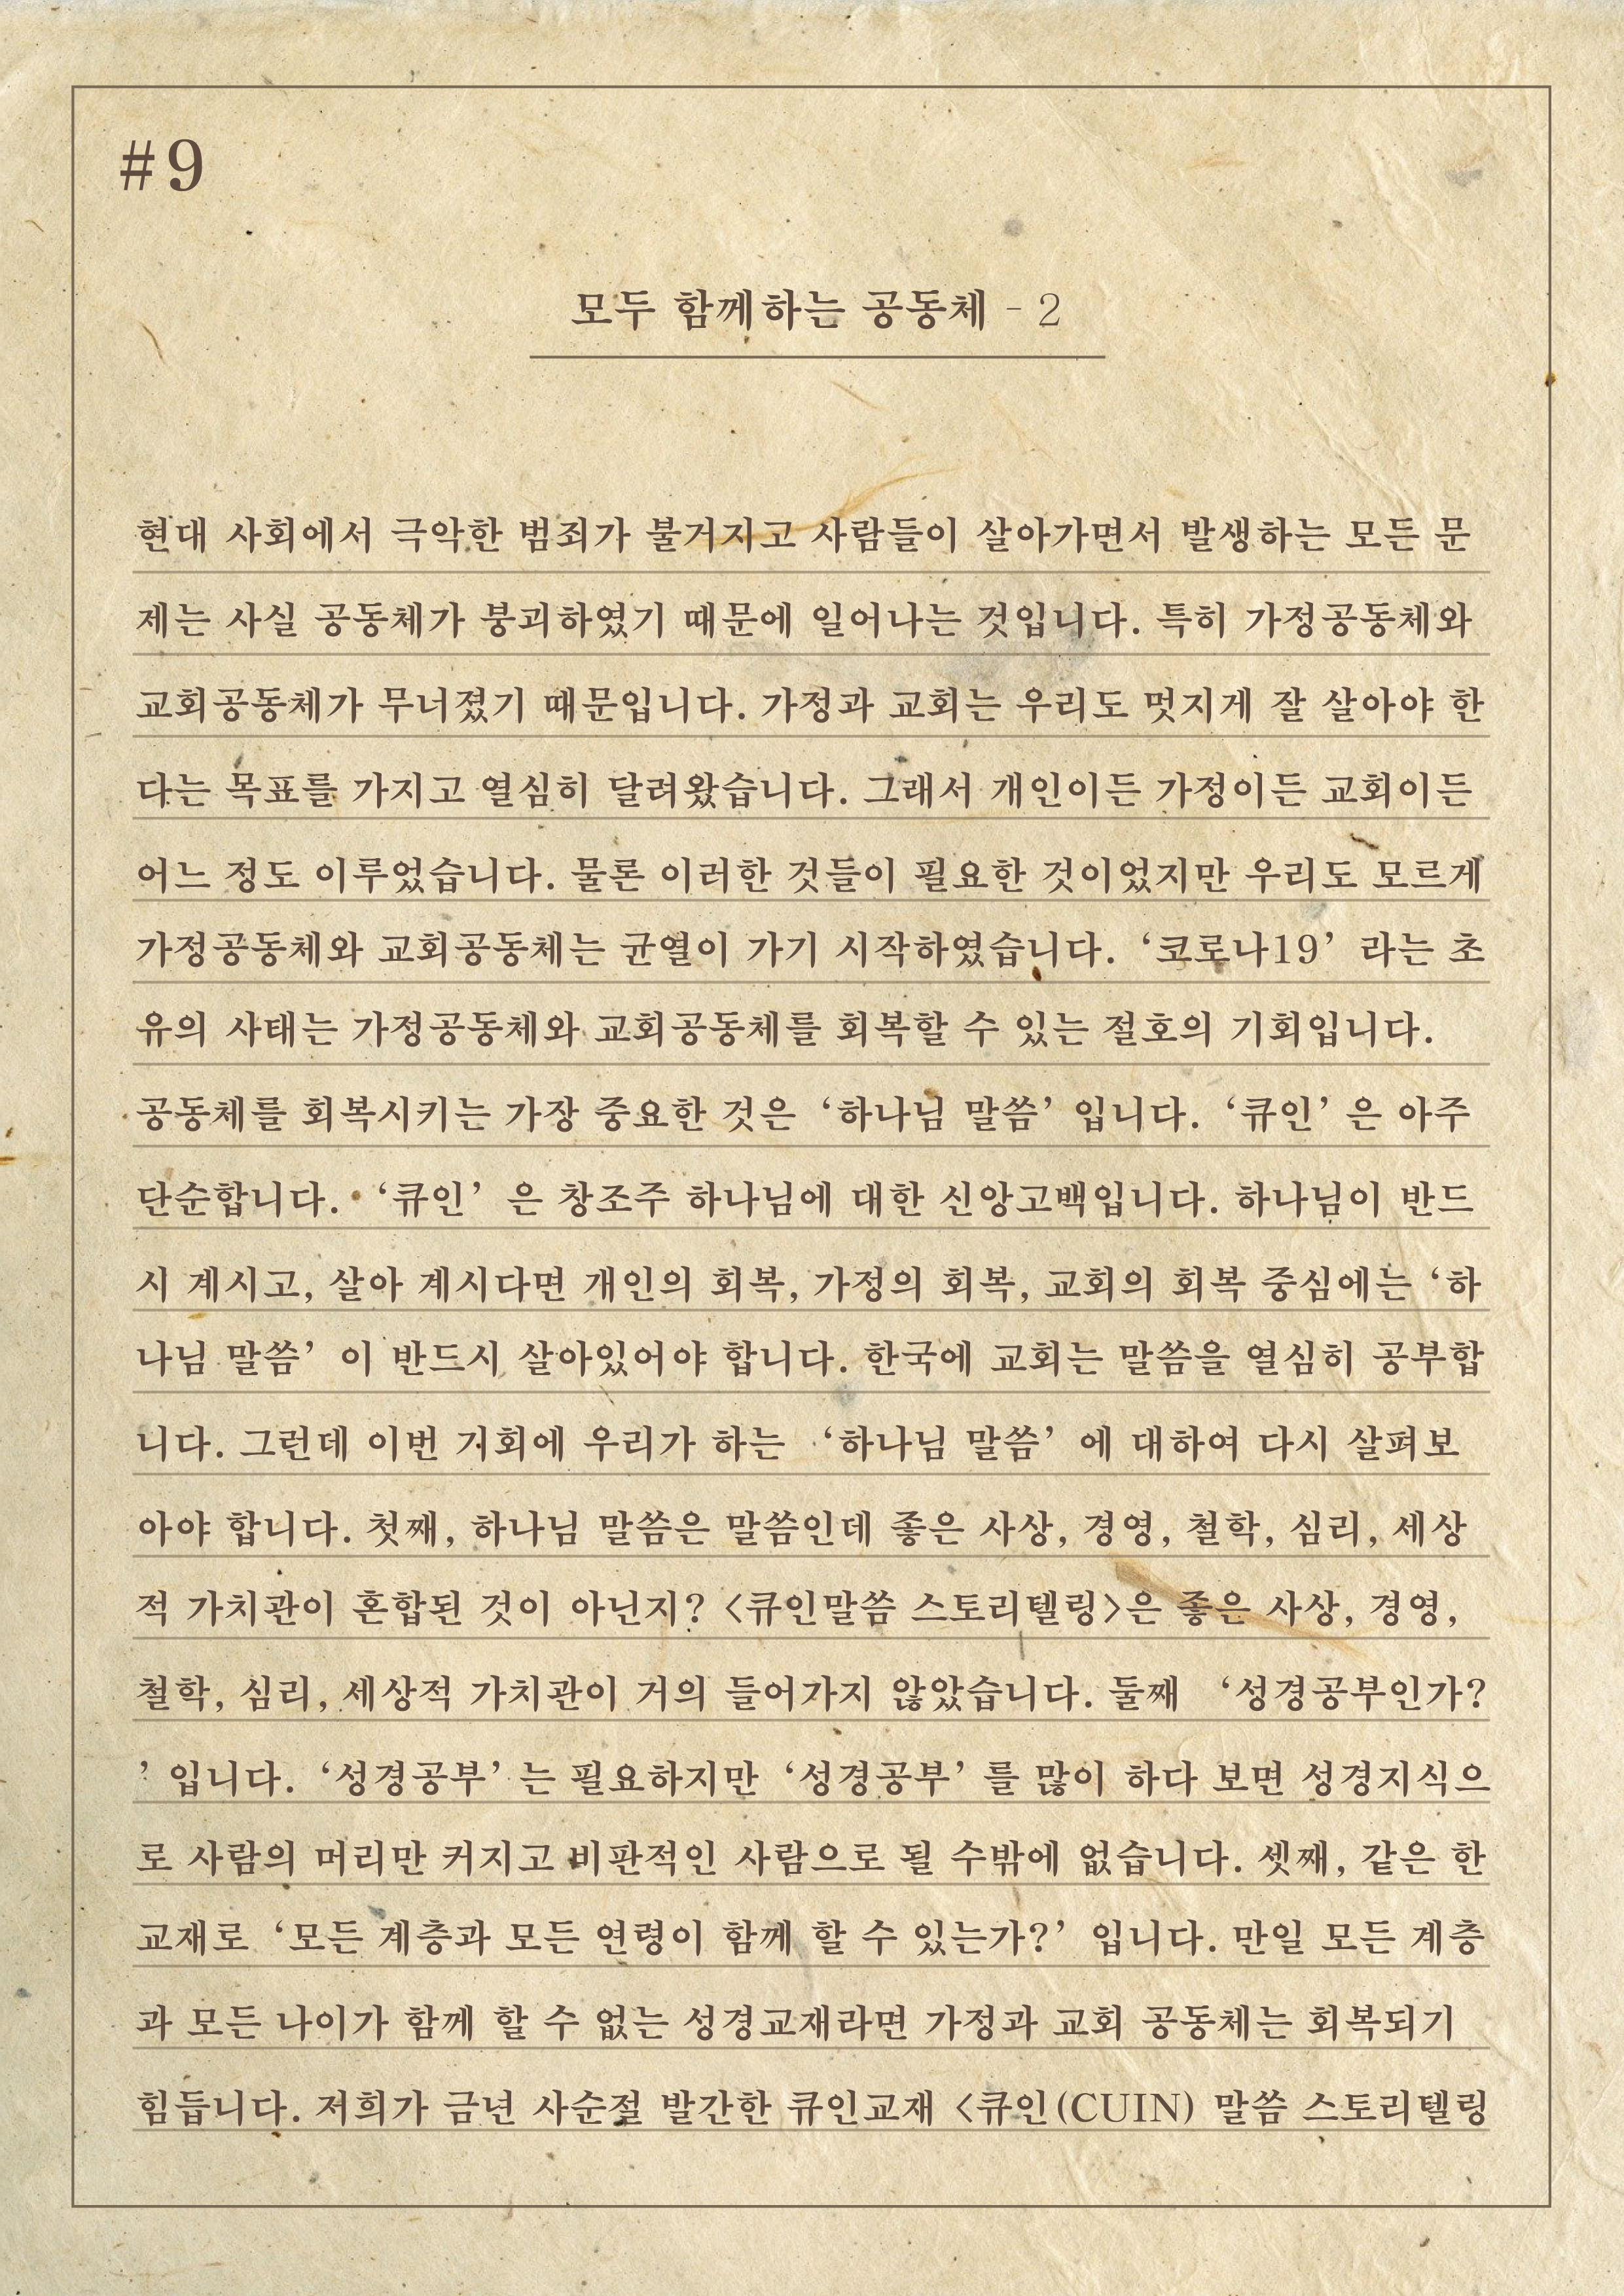 #9
모두 함께하는 공동체 - 2
현대 사회에서 극악한 범죄가 불거지고 사람들이 살아가면서 발생하는 모든 문
제는 사실 공동체가 붕괴하였기 때문에 일어나는 것입니다. 특히 가정공동체와
교회공동체가 무너졌기 때문입니다. 가정과 교회는 우리도 멋지게 잘 살아야 한
다는 목표를 가지고 열심히 달려왔습니다. 그래서 개인이든 가정이든 교회이든
어느 정도 이루었습니다. 물론 이러한 것들이 필요한 것이었지만 우리도 모르게
가정공동체와 교회공동체는 균열이 가기 시작하였습니다. ‘코로나19’ 라는 초
유의 사태는 가정공동체와 교회공동체를 회복할 수 있는 절호의 기회입니다.
공동체를 회복시키는 가장 중요한 것은 ‘하나님 말씀’ 입니다. ‘큐인’ 은 아주
단순합니다. ‘큐인’ 은 창조주 하나님에 대한 신앙고백입니다. 하나님이 반드
시 계시고, 살아 계시다면 개인의 회복, 가정의 회복, 교회의 회복 중심에는 ‘하
나님 말씀’ 이 반드시 살아있어야 합니다. 한국에 교회는 말씀을 열심히 공부합
니다. 그런데 이번 기회에 우리가 하는 ‘하나님 말씀’ 에 대하여 다시 살펴보
아야 합니다. 첫째, 하나님 말씀은 말씀인데 좋은 사상, 경영, 철학, 심리, 세상
적 가치관이 혼합된 것이 아닌지? <큐인말씀 스토리텔링>은 좋은 사상, 경영,
철학, 심리, 세상적 가치관이 거의 들어가지 않았습니다. 둘째 ‘성경공부인가?
’ 입니다. ‘성경공부’ 는 필요하지만 ‘성경공부’ 를 많이 하다 보면 성경지식으
로 사람의 머리만 커지고 비판적인 사람으로 될 수밖에 없습니다. 셋째, 같은 한
교재로 ‘모든 계층과 모든 연령이 함께 할 수 있는가?’ 입니다. 만일 모든 계층
과 모든 나이가 함께 할 수 없는 성경교재라면 가정과 교회 공동체는 회복되기
힘듭니다. 저희가 금년 사순절 발간한 큐인교재 <큐인(CUIN) 말씀 스토리텔링